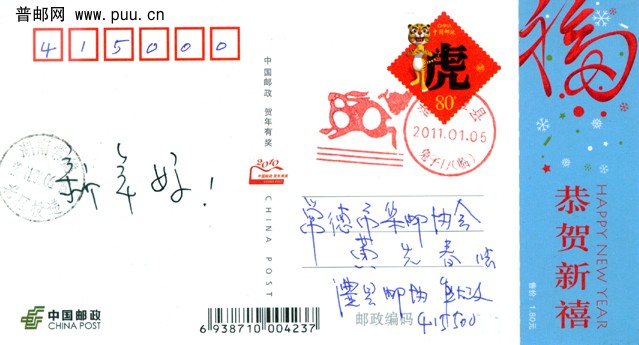 普邮网
www.puu.cn
415000
中国邮政 贺年有奖
CHINA POST
2010
虎
80
2011.01.05
新年好!
常德市集邮协会
黄先春 收
澧县邮协
415500
中国邮政
CHINA POST
6 938710 004237
邮政编码
福
恭贺新禧
HAPPY NEW YEAR
售价:1.80元